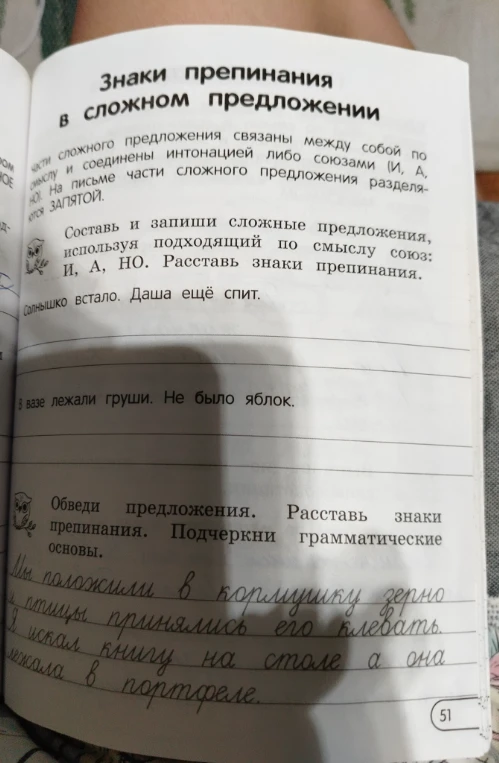 Знаки препинания
в сложном предложении
части сложного предложения связаны между собой по
смыслу и соединены интонацией либо союзами (И, А,
НО). На письме части сложного предложения разделя-
ются ЗАПЯТОЙ.
Составь и запиши сложные предложения,
используя подходящий по смыслу союз:
И, А, НО. Расставь знаки препинания.
Солнышко встало. Даша ещё спит.
В вазе лежали груши. Не было яблок.
Обведи предложения. Расставь знаки
препинания. Подчеркни грамматические
основы.
Мы положили в кормушку зерно
и птицы принялись его клевать.
Я искал книгу на столе а она
лежала в портфеле.
51